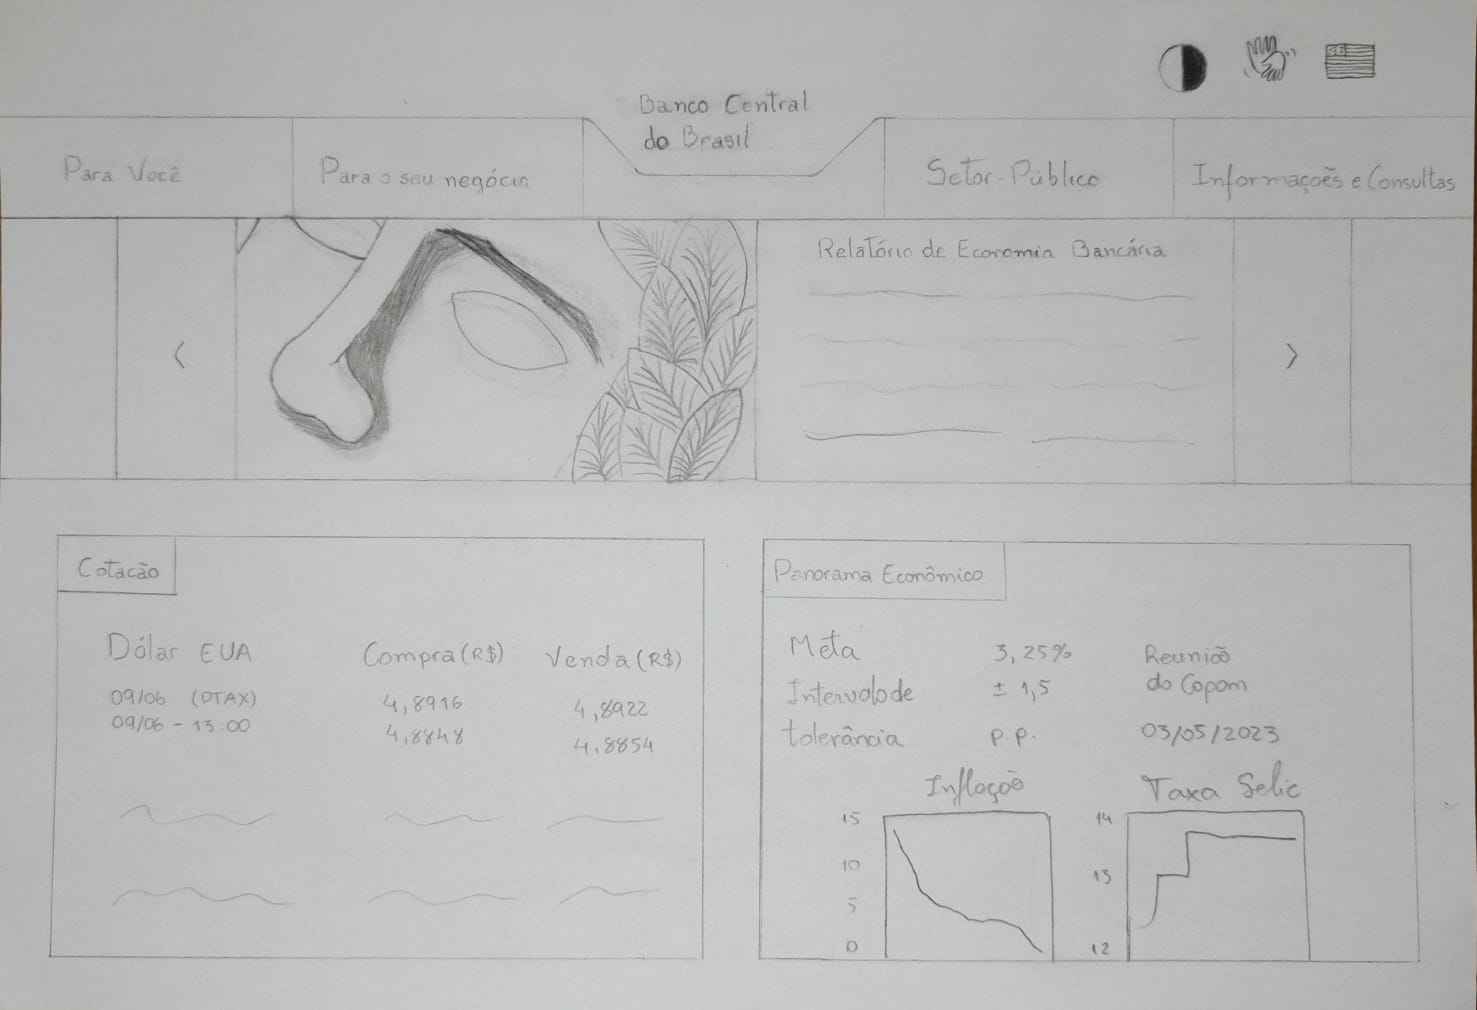 Banco Central
do Brasil
Para Você
Para o seu negócio
Setor-Público
Informações e Consultas
<
Relatório de Economia Bancária
>
Cotacão
Dólar EUA Compra (R$) Venda (R$)
09/06 (PTAX) 4,8916 4,8922
09/06 - 13:00 4,8848 4,8854
Panorama Econômico
Meta 3,25% Reunião
Intervalo de ± 1,5 do Copom
tolerância p.p. 03/05/2023
Inflação
15
10
5
0
Taxa Selic
14
13
12